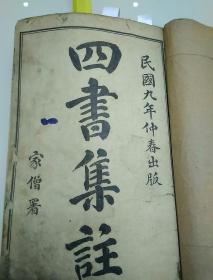 民國九年仲春出版
四書集註
家僧署